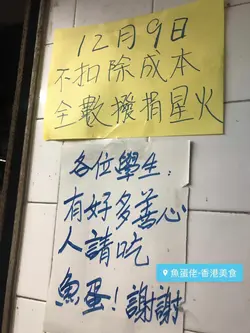 12月9日
不扣除成本
全數撥捐星火
各位學生:
有好多善心
人請吃
魚蛋!謝謝
魚蛋佬-香港美食